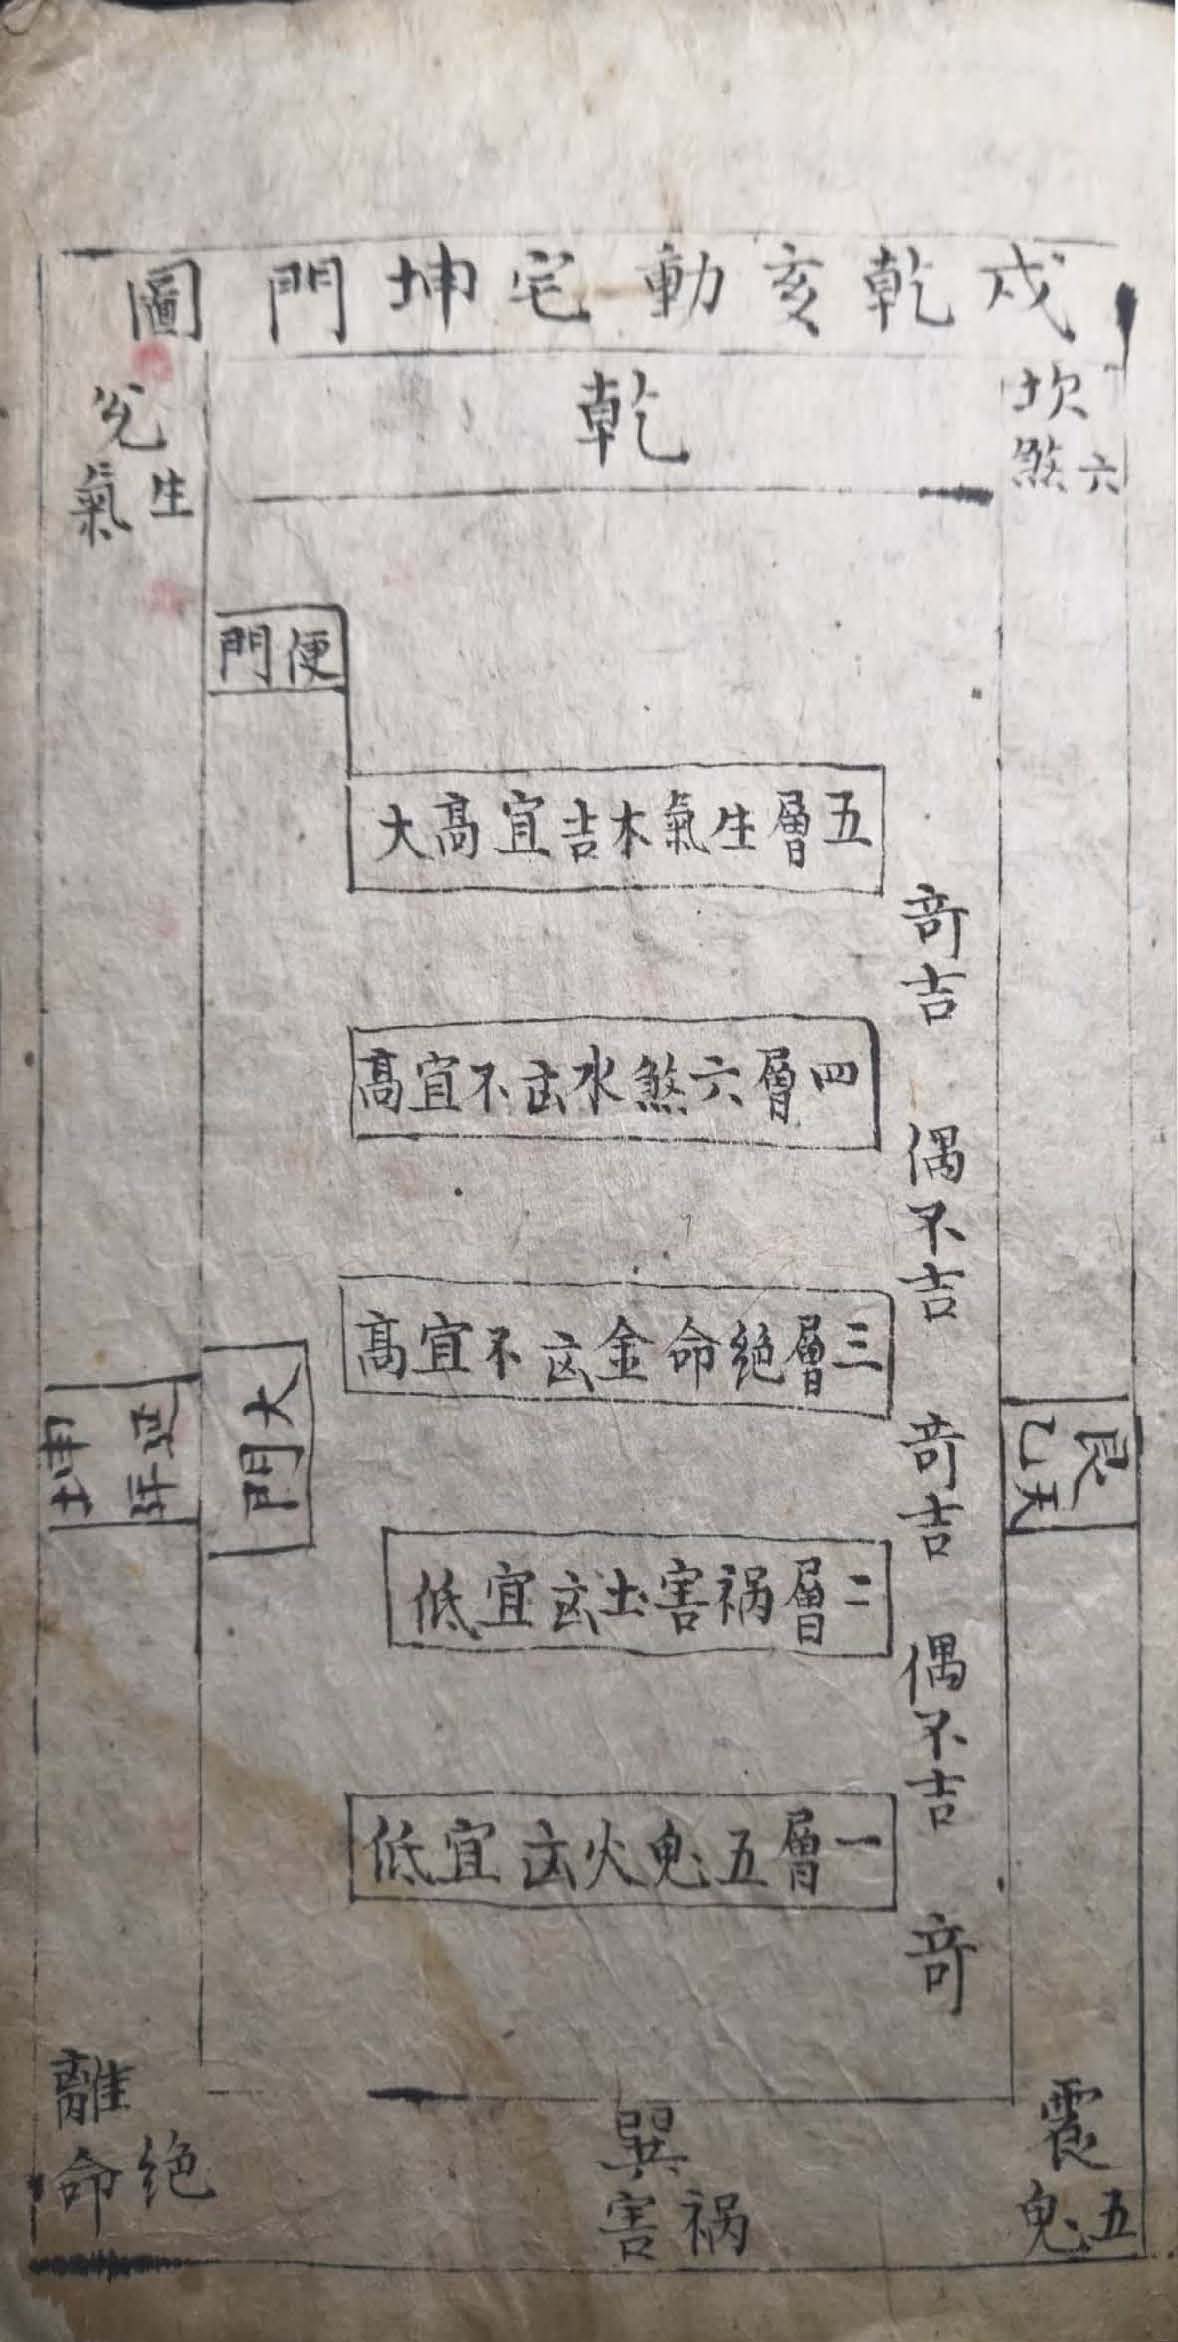 戌乾亥動宅坤門圖
乾
坎
六煞
兌
生氣
便門
五層生氣木吉宜高大
奇吉
四層六煞水凶不宜高
偶不吉
三層绝命金凶不宜高
奇吉
大門
坤
延年
艮
天乙
二層祸害土凶宜低
偶不吉
一層五鬼火凶宜低
奇
離
绝命
巽
祸害
震
五鬼